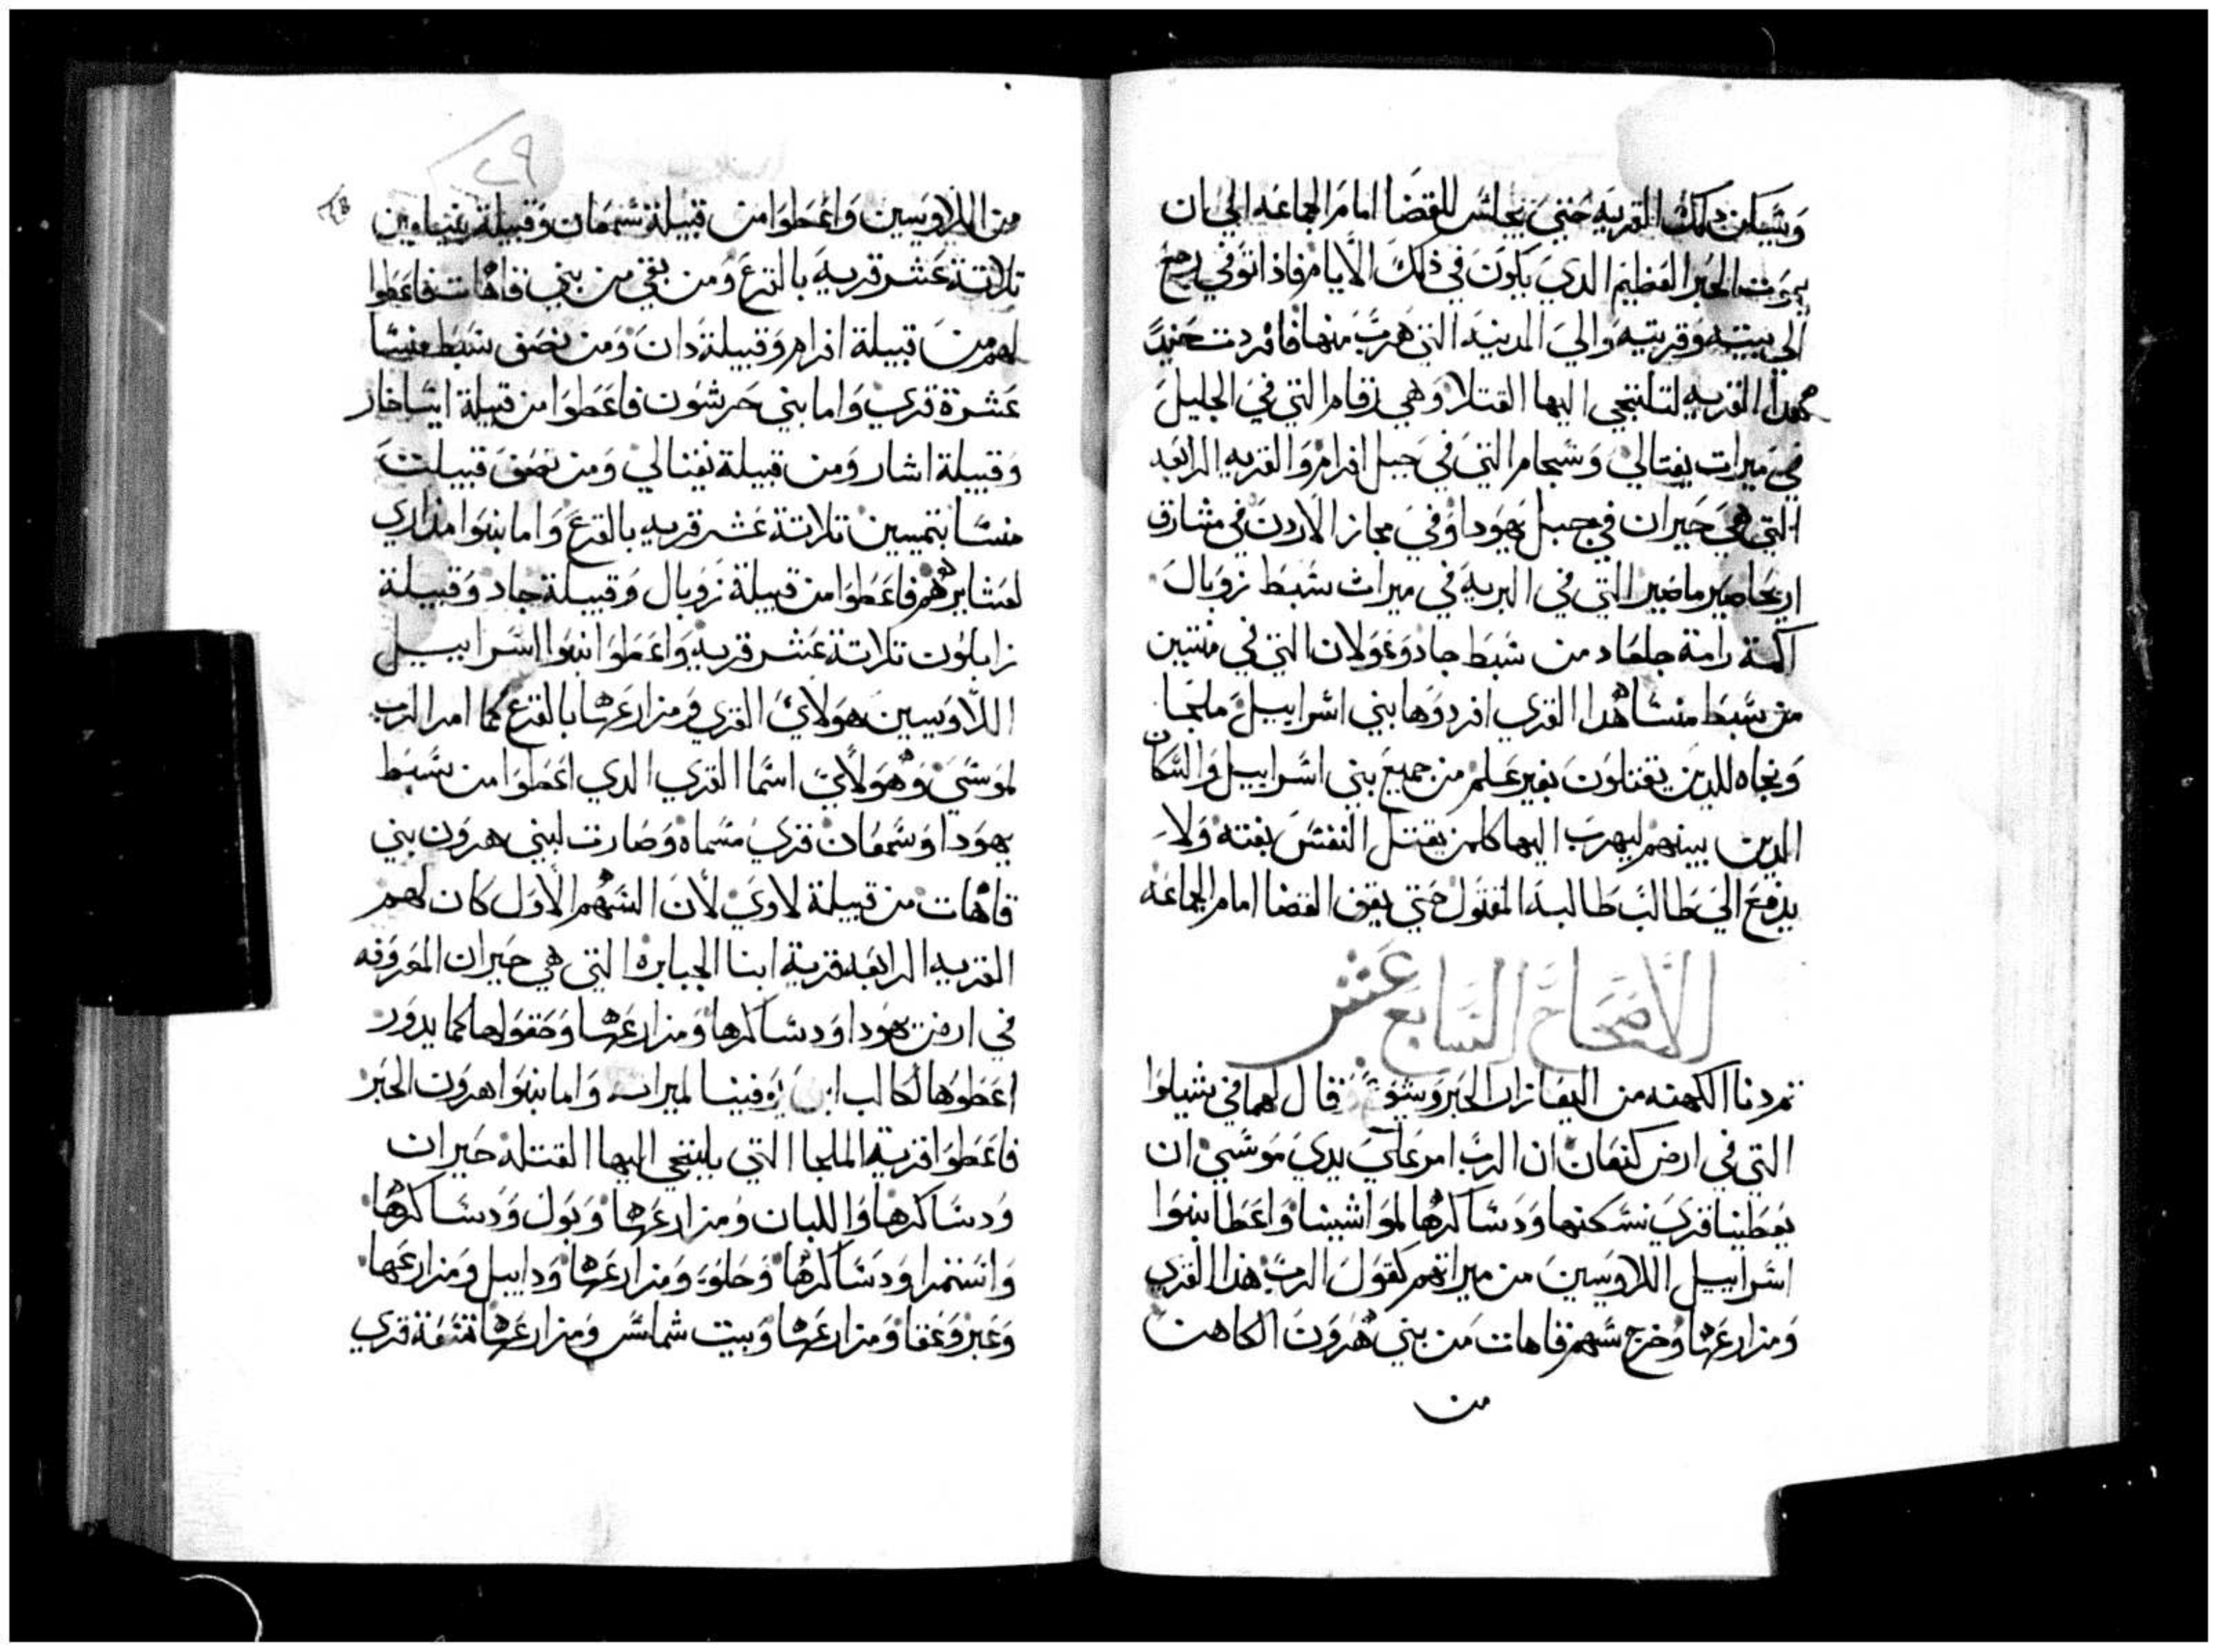 وَيسكن تلك القريه حَتيَ يجلسَ للقضَا امامَ الجماعَه اليَ ان
يموَت الحَبر العَظيم الدي يَكوَنَ في ذلكَ الأيام فاذا توَفي رجع
الي بيته وَقريته وَاليَ المدينه التي هَربَّ منها فافردت حَنيدًَ
هَدا القريه لتلتجي اليها القتلا وَهي رقام التي فيَ الجليلَ
في ميرات يفتالي وَسَجام التيَ فيَ جبل افرام وَالقريه الرابَعه
التي هيَ حَبران في جبل يهَودا وَفيَ مجاز الأردنَ في مشارق
اريحَا صير ماصَير التي في البريهَ في ميراث سَبطَ زوَبالَ
اكمة رامة جلعَاد من سَبط جاد وَعوَلان التي في متنين
من سَبطَ منسَا هَدا القري افردوَها بني اسَراييلَ ملجَا
وَنجاه للدين يقتلوَنَ بغير عَلم من جميعَ بني اسَراييل وَالسَكان
الدين بينهم ليهربَ اليها كلمن يقتل النفسَ بغته وَلاَ
يدفعَ اليَ طَالبَ طَالبه المقتوَل حَتي يقف القضا امام الجماعَه
الأصَحَاحَ السَابعَ عَشر
تم دنا الكهنه من اليعَازار الحَبر وَيشوَع فقال لهما في شيلوَا
التي في ارض كنعَان ان الربَّ امر عَليَ يديَ موَسَيَ ان
يعَطَينا قريَ نسَكنها وَدسَاكرهَا لموَاشينا وَاعَطَا بنوَا
اسَراييل اللاوَيسينَ من ميراتهم كقوَلَ الربَّ هَدا القري
وَمزارعَها وَخرج سَهم قاهات من بني هَروَنَ الكاهن
من
٢٩
من اللاوَيسين وَاعَطوَا من قبيلة سَمعَان وَقبيلة بنيامين
تلاتة عَشر قريه بالقرعَ وَمن بقي من بني قاهَات فاعَطوَا
لهم من قبيلة افرام وَقبيلة دانَ وَمن نصَف سَبط منسَا
عَشرة قري وَاما بني حَرشوَن فاعَطوَا من قبيلة ايسَاخار
وَقبيلة اشار وَمن قبيلة نفتالي وَمن نصَفَ قبيلتَ
منسَا بتميسين تلاتة عَشر قريه بالقرعَ وَاما بنوَا مزاري
لعَشايرهَم فاعَطوَا من قبيلة زوَبال وَقبيلة جاد وَقبيلة
زابلوَن تلاتة عَشر قريه وَاعَطوَا بنوَا اسَراييل
اللاوَيسينَ هوَلايَ القري وَمزارعَها بالقرعَ كما امر الرب
لموَسَيَ وَهَوَلأيَ اسَما القري الدي اعَطوَا من سَبط
يهوَدا وَسَمعَان قريَ مسَماة وَصَارت لبني هروَن بني
قاهَات من قبيلة لاويَ لأن السَهَم الأوَلَ كان لهم
القريه الرابعَه قرية ابنا الجبابره التي هي حَبران المعَروَفه
في ارض يهوَدا وَدسَاكرها وَمزارعَها وَحَقوَلها كما يدوَر
اعَطوَها لكالب ابن يَوَفينا لميرات وَاما بنوَا هروَن الحَبر
فاعَطوَا قرية الملجا التي يلتجي اليها القتله حَبران
وَدسَاكرها وَاللبان وَمزارعَها وَبوَل وَدسَاكرهَا
وَاسَتمرا وَدسَاكرهَا وَحَلوَوَ وَمزارعَها وَدابيل وَمزارعَها
وَعَبر وَعَفا وَمزارعَها وَبيت شماسَ وَمزارعَها تسَعَة قري